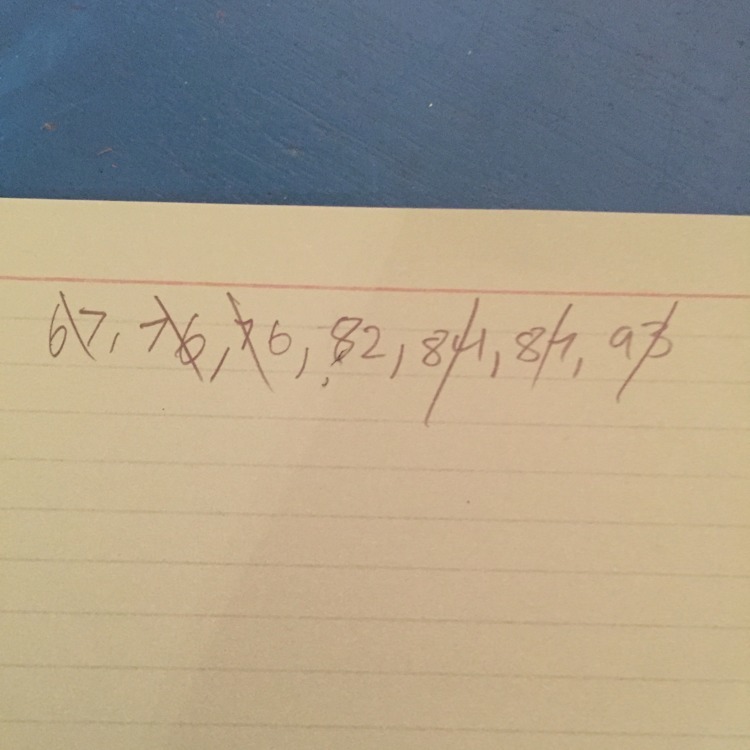 67, 76, 76, 82, 84, 87, 93